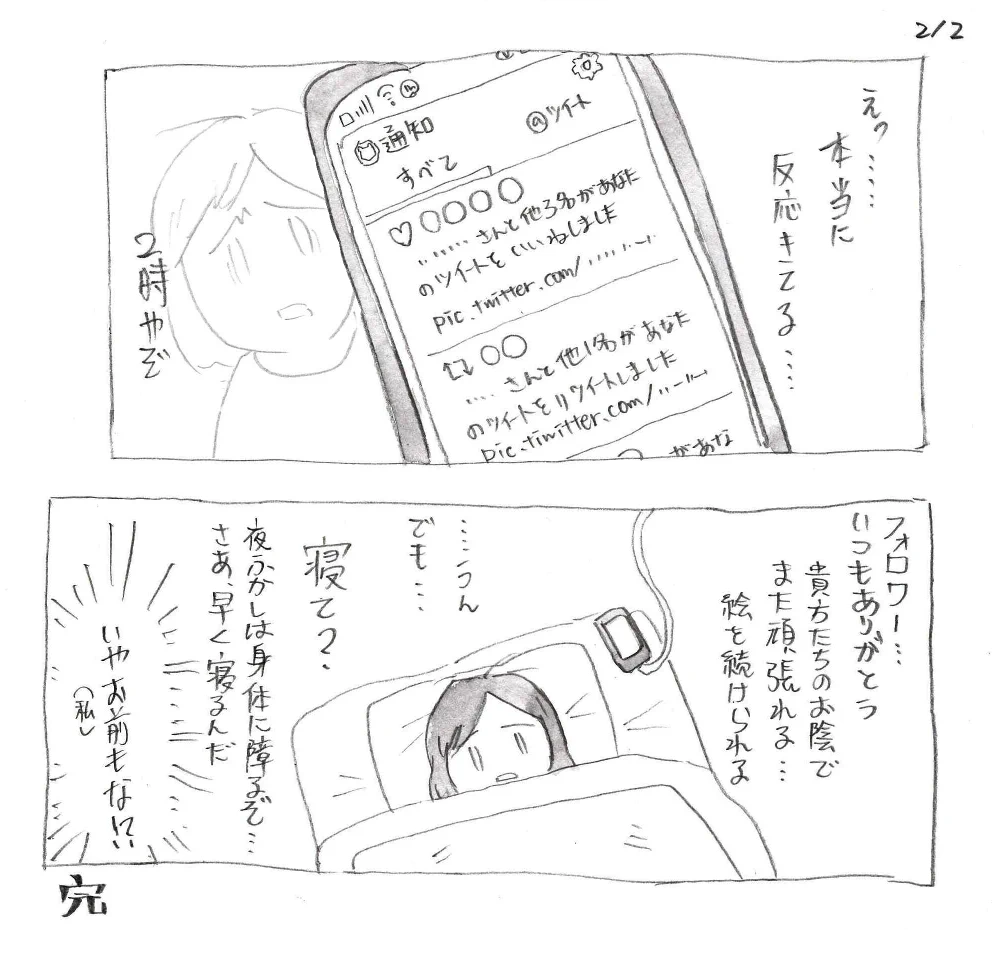 2/2
えっ……
本当に
反応きてる…
通知
@ツイート
すべて
♡○○○○○
……さんと他3名があなた
のツイートをいいねしました
pic.twitter.com/……
○○
……さんと他1名があなた
のツイートをリツイートしました
pic.tiwitter.com/……
があなな
2時やぞ
フォロワー…
いつもありがとう
貴方たちのお陰で
また頑張れる…
絵を続けられる
……うん
でも…
寝て?
夜ふかしは身体に障るぞ…
さあ、早く寝るんだ
いやお前もな!?
(私)
完